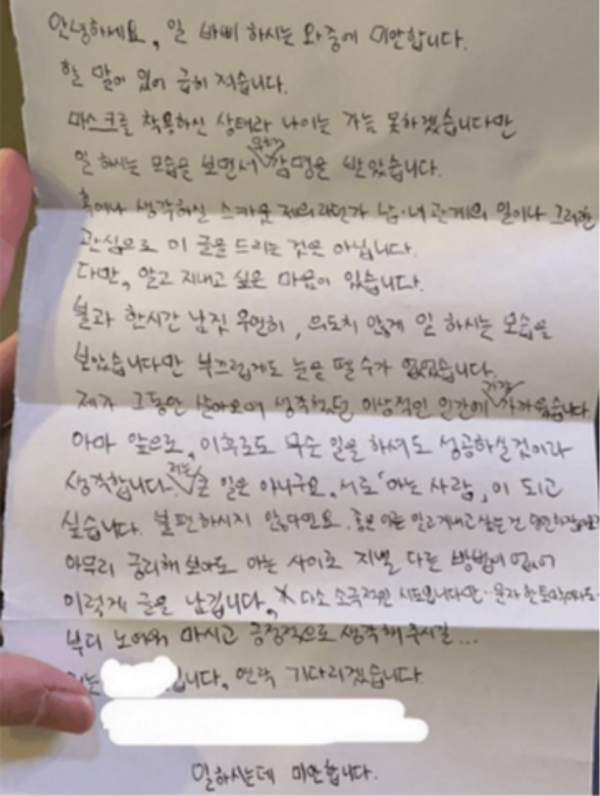 안녕하세요, 일 바삐 하시는 와중에 미안합니다.
할 말이 있어 급히 적습니다.
마스크를 착용하신 상태라 나이는 가늠 못하겠습니다만
일 하시는 모습을 보면서 감명을 받았습니다.
혹여나 생각하실 스카웃 제의라던가 남·녀 관계의 일이나 그러한
관심으로 이 글을 드리는 것은 아닙니다.
다만, 알고 지내고 싶은 마음이 있습니다.
불과 한시간 남짓 우연히, 의도치 않게 일 하시는 모습을
보았습니다만 부끄럽게도 눈을 뗄 수가 없었습니다.
제가 그동안 살아오며 생각했던 이상적인 인간에 가까웠습니다.
아마 앞으로, 이후로도 무슨 일을 하셔도 성공하실 것이라
생각합니다. 저는 큰 일은 아니구요. 서로 「아는 사람」이 되고
싶습니다. 불편하시지 않다면요. 좋은 이를 알고지내고 싶은 건
아무리 궁리해 보아도 아는 사이로 지낼 다른 방법이 없어
이렇게 글을 남깁니다. X 다소 소극적인 시도입니다만. 문자 한 토막이라도.
부디 노여워 마시고 긍정적으로 생각해 주시길...
저는 입니다. 연락 기다리겠습니다.
일하시는데 미안합니다.